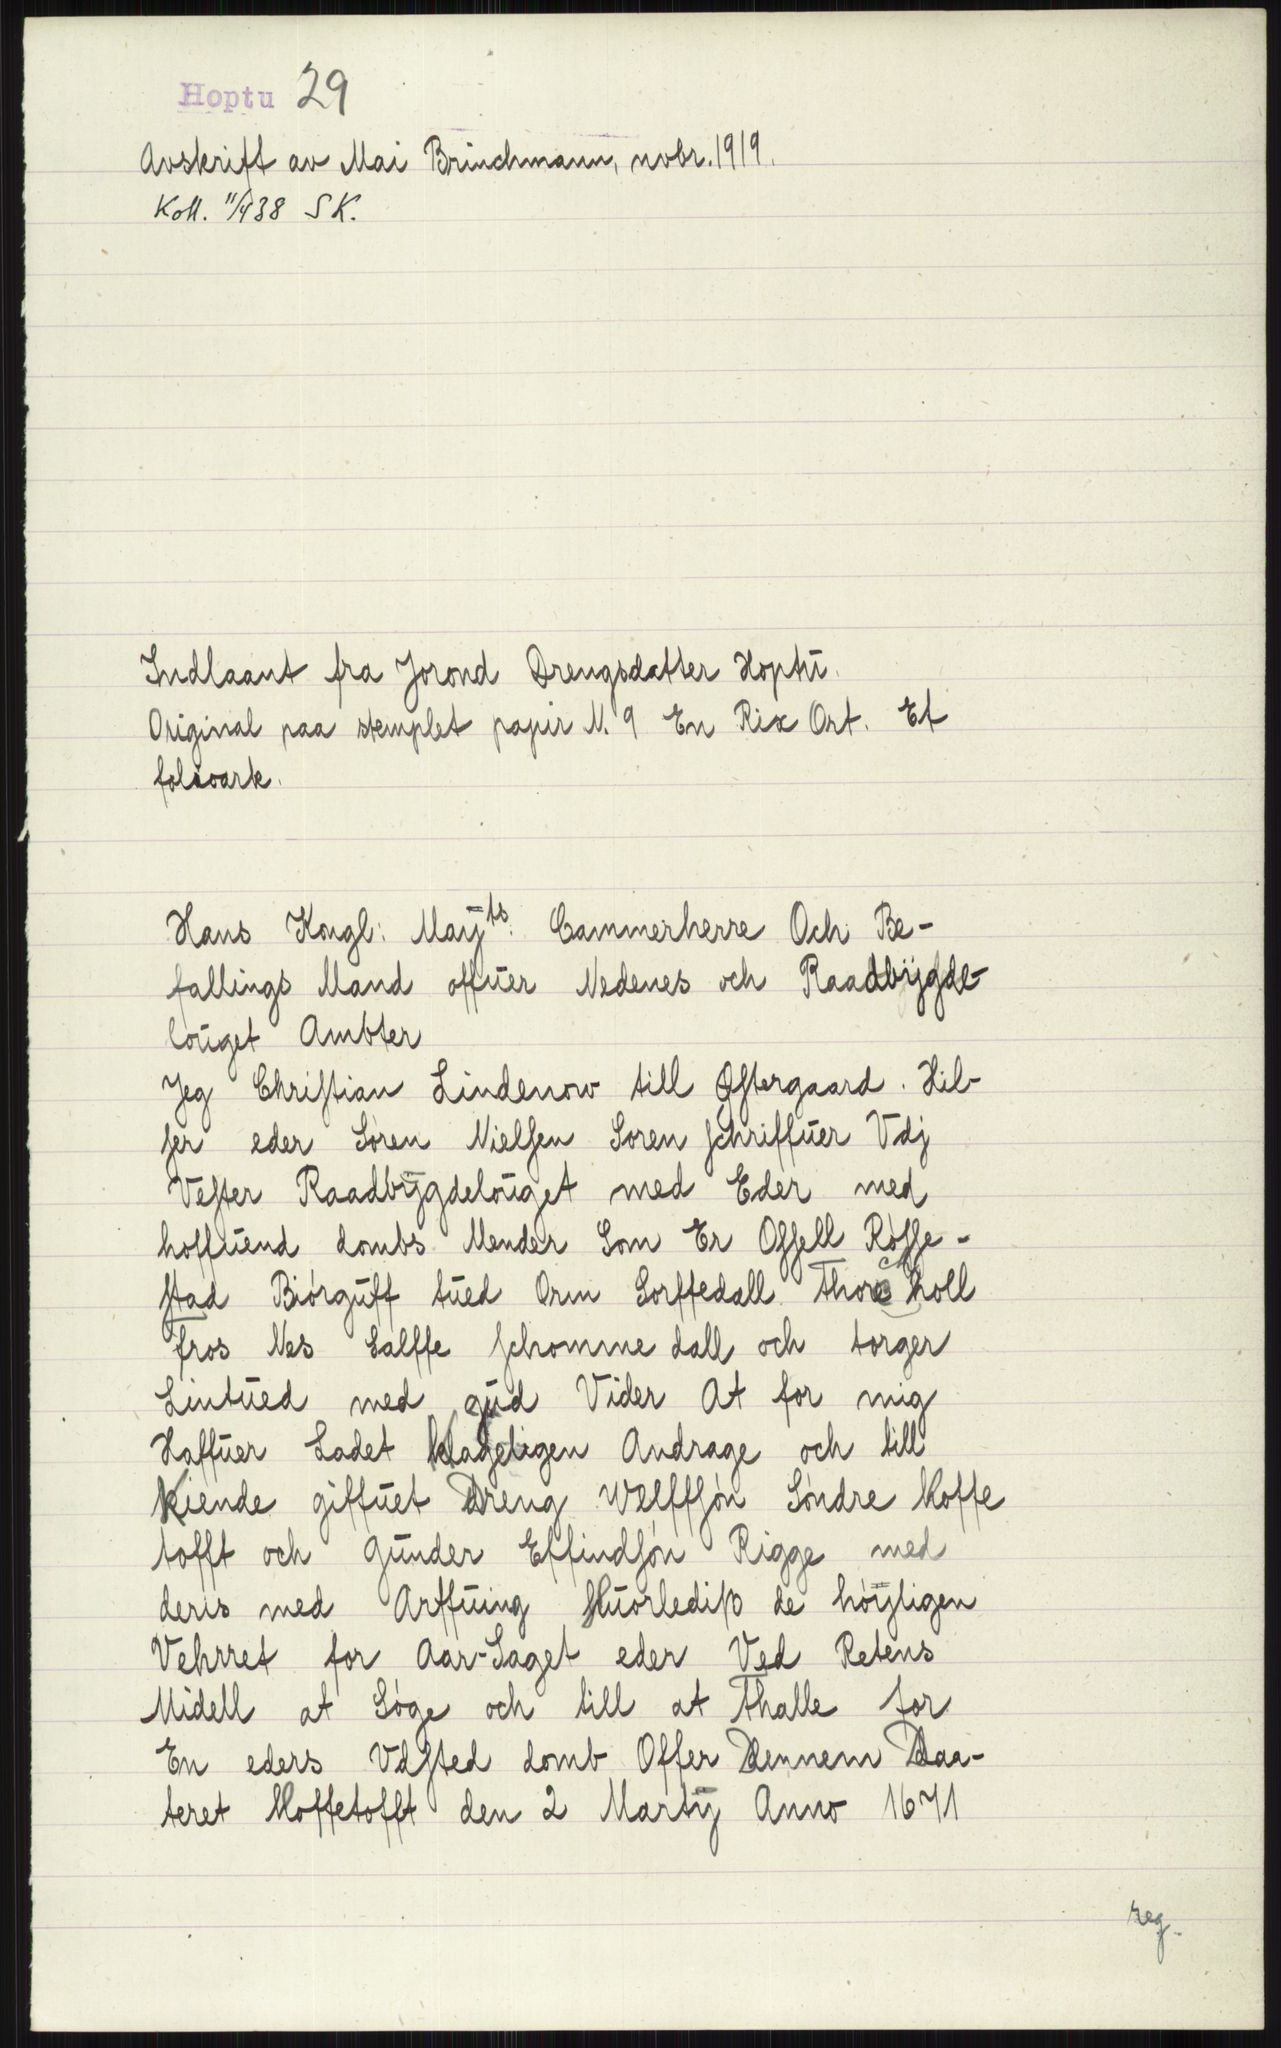 Hoptu 29
Avskrift av Mai Brinchmann, novbr. 1919.
Koll. 11/4 38 SK.
Indlaant fra Jorond Drengsdatter Hoptu.
Original paa stemplet papir N. 9 En Rix Ort. Et
folioark.
Hans Kongl: Mayts: Cammerherre Och Be-
fallings Mand offuer Nedenes och Raadbygde-
louget Ambter
Jeg Christian Lindenow till Østergaard. Hil-
ser eder Søren Nielsen Soren schriffuer Vdj
Vester Raadbygdelouget med Eder med
hoffuend dombs Mender Som Er Offell Røsse-
stad Biørguff tued Orm Sorffedall Thore holl
Tros Nes Salffe schomme dall och torger
Lintued med gud Vider At for mig
Haffuer Ladet klageligen Andrage och till
Kiende giffuet Dreng Welffsøn Søndre Hoffe
tofft och gunder Effindsøn Rigge med
deris med Arffuing Huorledis de høyligen
Vehrret for Aar-Saget eder Ved Retens
Midell at Søge och till at Thalle for
En eders Vdsted domb Offer Dennem Daa-
teret Hoffetofft den 2 Marty Anno 1671
reg.